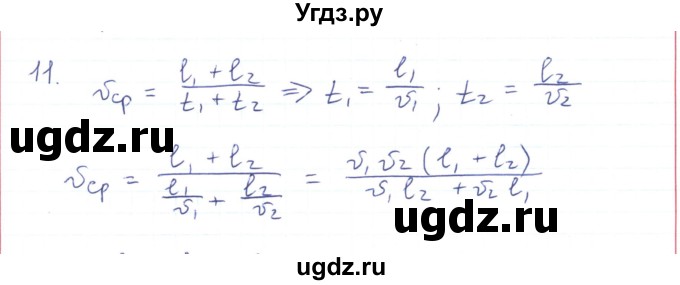 Угдз.ру
11. υср = (l₁ + l₂)/(t₁ + t₂) => t₁ = l₁/υ₁; t₂ = l₂/υ₂
©ugdz.ru
υср = (l₁ + l₂)/(l₁/υ₁ + l₂/υ₂) = υ₁υ₂(l₁ + l₂)/(υ₁l₂ + υ₂l₁)
©ugdz.ru
ugdz.ru